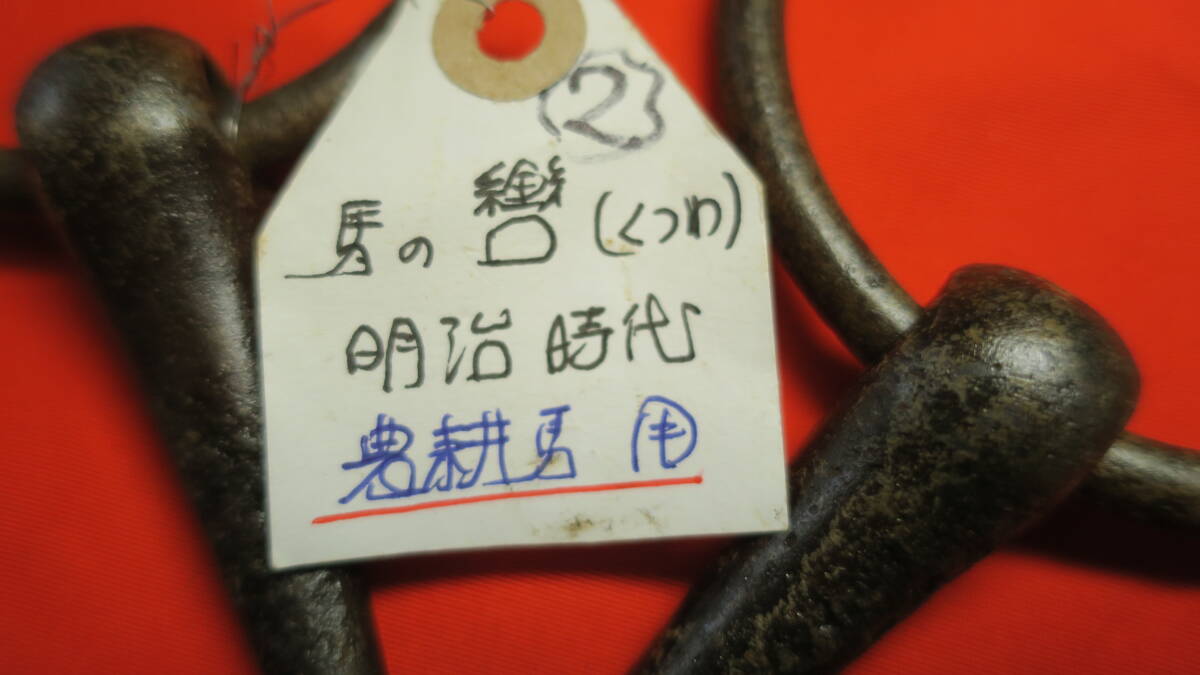 ②
馬の轡(くつわ)
明治時代
農耕馬用